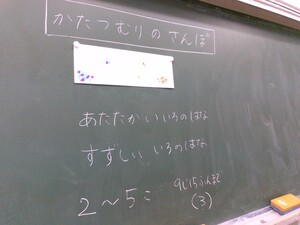 かたつむりのさんぽ
あたたかいいろのはな
すずしい いろのはな
2〜5こ
9じ15ふんまで
(3)